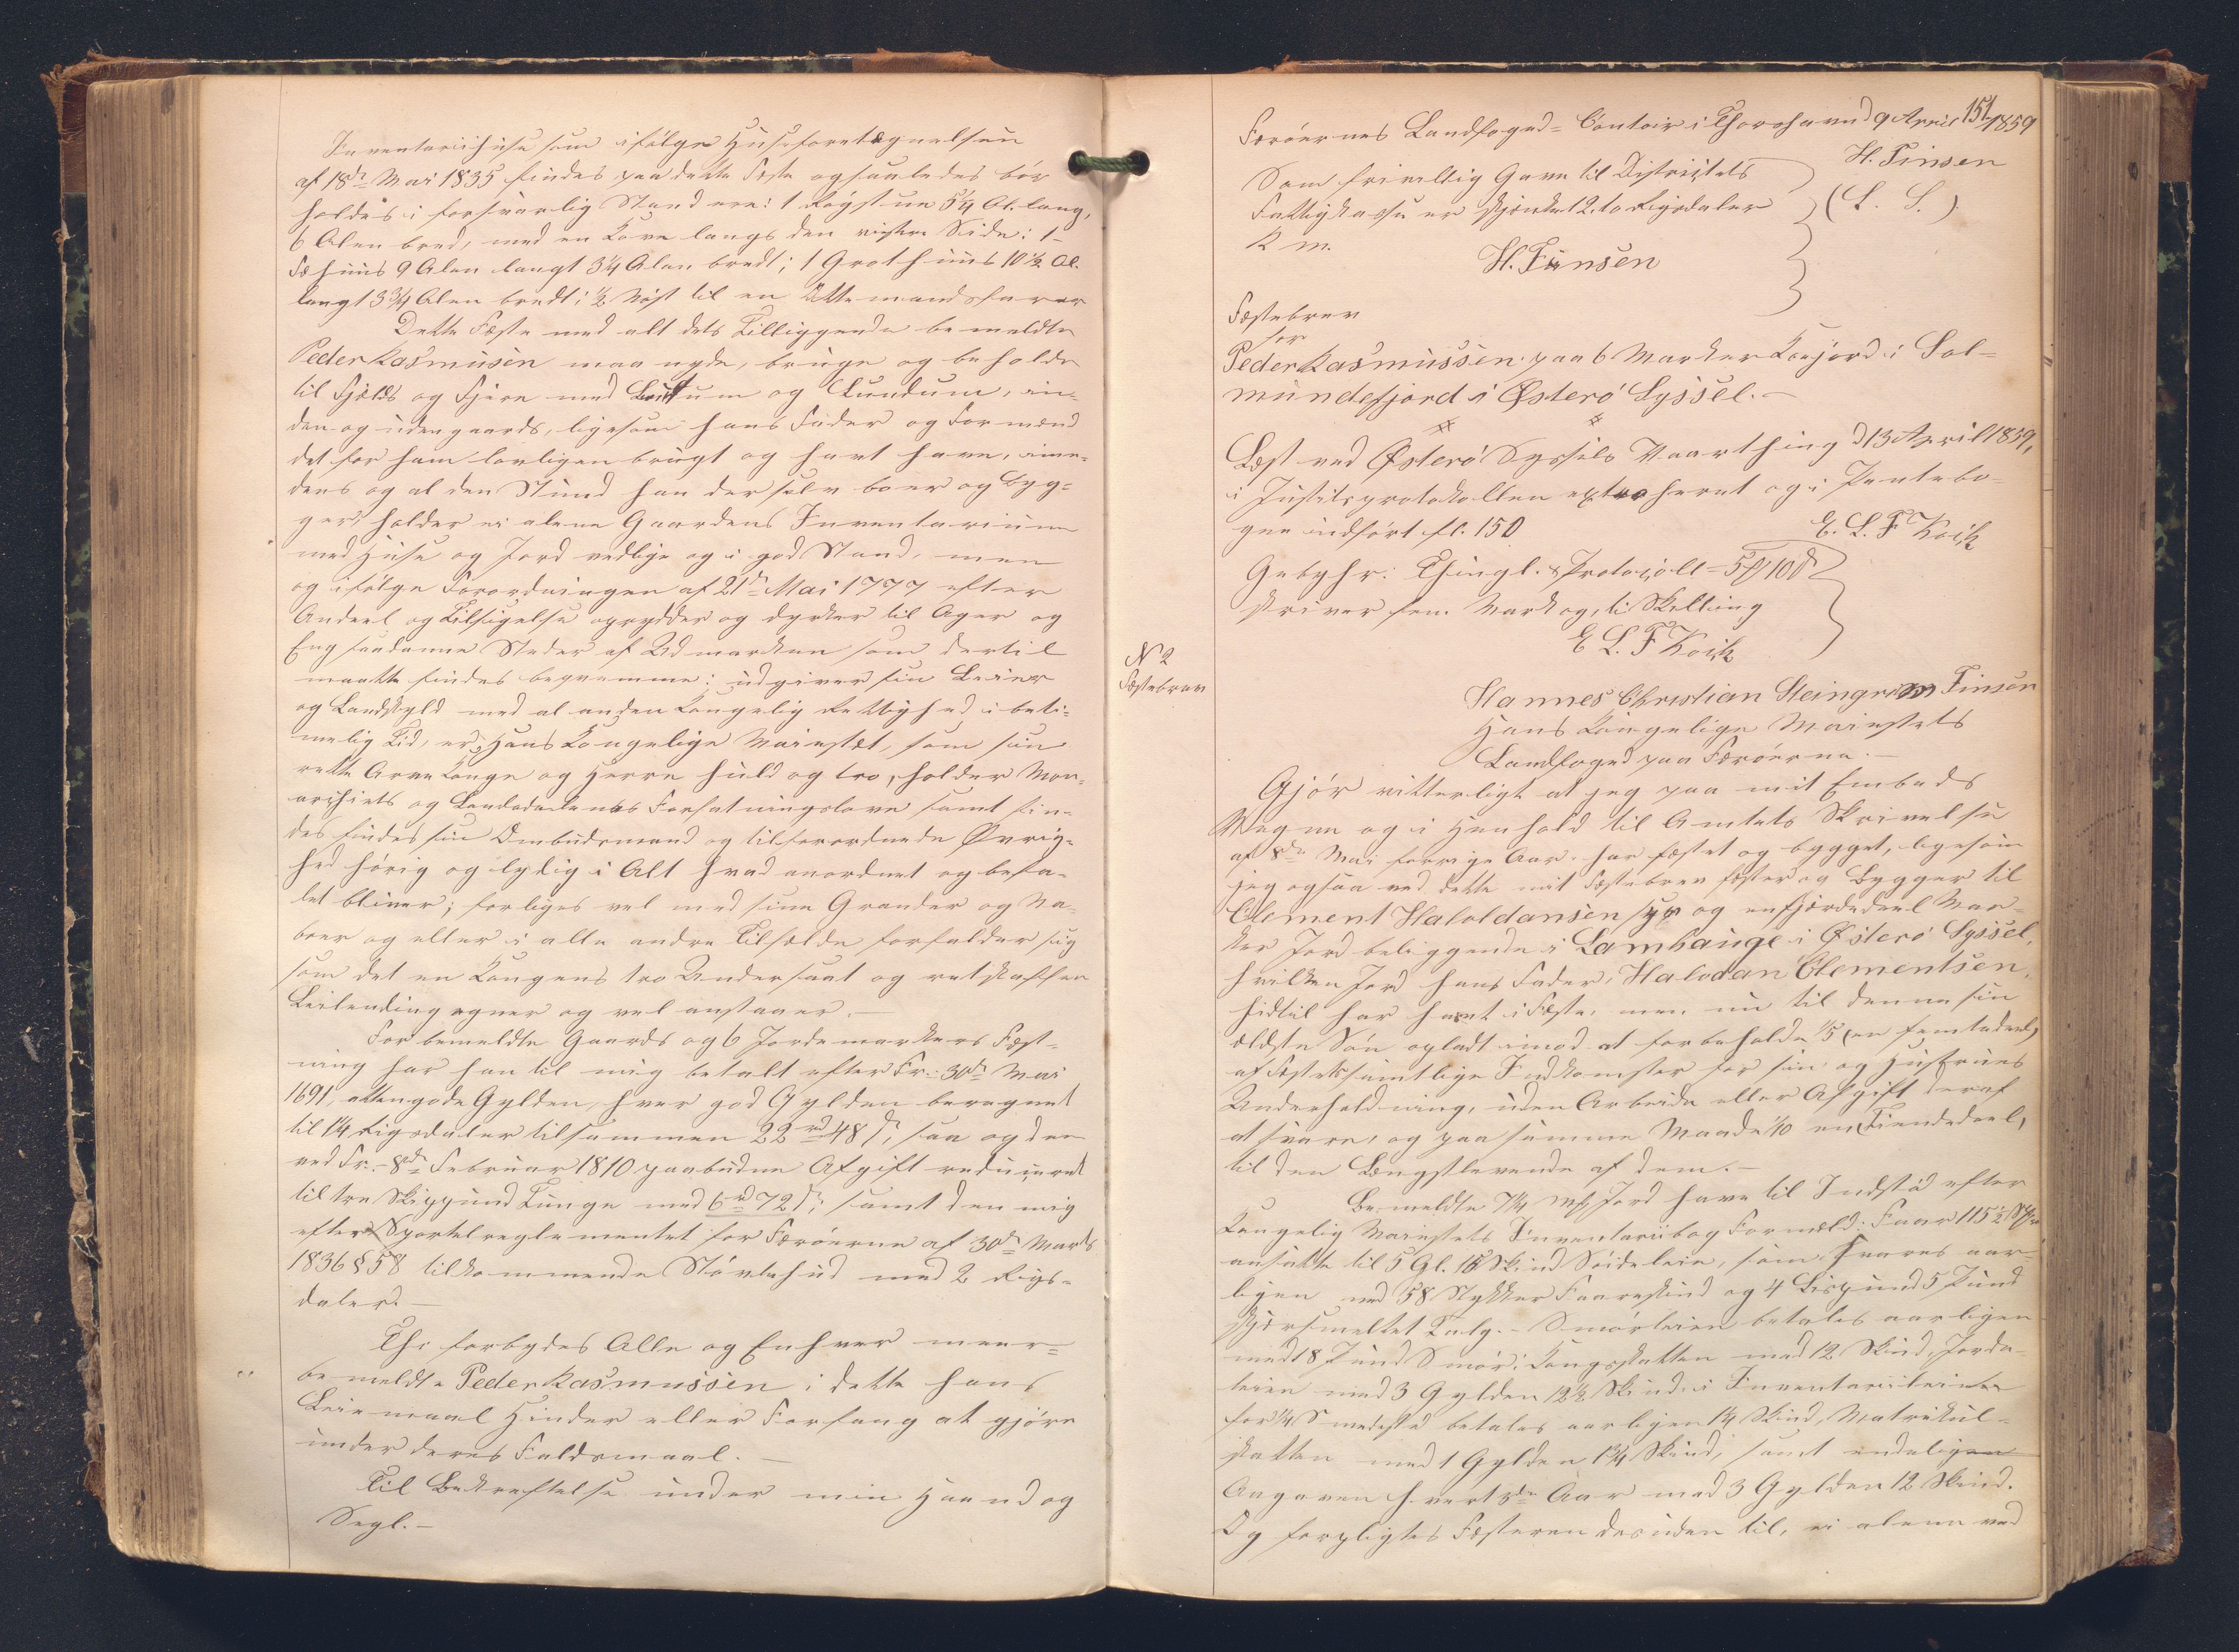 Inventariihuse som ifølge Husefortegnelsen
af 18de Mai 1835 findes paa dette Fæste og saaledes bør
holdes i forsvarlig Stand ere: 1 Røgstue 5 1/4 Al. lang,
6 Alen bred, med en Kove langs den vestre Side: 1
Fæhuus 9 Alen langt 3 1/4 Alen bredt; 1 Grothuus 10 1/2 Al.
langt 3 3/4 Alen bredt; 1/2 Nøst til en Ottemandsfarer
Dette Fæste med alt dets Tilliggende bemeldte
Peder Rasmusen maa nyde, bruge og beholde
til Fjelds og Fjære med Luttum og Lundum, in-
den og uden gaards, ligesom hans Fader og Formænd
det før ham lovligen brugt og havt have, ime-
dens og al den Stund han der selv boer og byg-
ger, holder ei alene Gaardens Inventarium
med Huse og Jord vedlige og i god Stand, men
og ifølge Forordningen af 21de Mai 1777 efter
Andeel og Tilsigelse oprydder og dyrker til Ager og
Eng saadanne Steder af Udmarken som dertil
maatte findes beqvemme; udgiver sin Leier
og Landskyld med al anden Kongelig Rettighed i beti-
melig Tid, er Hans Kongelige Maiestæt, som sin
rette Arve Konge og Herre huld og tro, holder Mon-
archiets og Landsdelenes Forfatningslove samt
findes sin Ombudsmand og tilforordnede Øvrig-
hed hørig og lydig i Alt hvad anordnet og befa-
let bliver; forliges vel med sine Grander og Na-
boer og ellers i alle andre Tilfælde forholder sig
som det en Kongens tro Undersaat og retskaffen
Leilending egner og vel anstaaer.
For bemeldte Gaards og 6 Jordemarkers Fæst-
ning har han til mig betalt efter Fr. 30te Mai
1691, atten gode Gylden, hver god Gylden beregnet
til 1 1/4 Rigsdaler tilsammen 22 rd 48 s, saa og den
ved Fr. 8de Februar 1810 paabudne Afgift reduceret
til tre Skippund Tunge med 6 rd 72 s; samt den mig
efter Sportelreglementet for Færøerne af 30te Marts
1836 § 58 tilkommende Støvlehud med 2 Rigs-
daler.
Thi forbydes Alle og Enhver meer-
bemeldte Peder Rasmussen i dette hans
Leiemaal Hinder eller Forfang at gjøre
under deres Faldsmaal.
Til Bekræftelse under min Haand og
Segl.
151
Færøernes Landfoged-Contoir i Thorshavn d 9 April 1859
H. Finsen
Som frivillig Gave til Districtets
(L. S.)
Fattigkasse er skjænket 2 to Rigsdaler
R. M.
H. Finsen
Fæstebrev
for
Peder Rasmussen paa 6 Marker Kongejord i Sol-
mundefjord i Østerø Syssel.
Læst ved Østerø Syssels Vaarthing d 13 April 1859,
i Justitsprotokollen extraheret og i Pantebo-
gen indført fl. 150
E. L. F Koch
Gebyhr: Thingl. & Protocoll = 5 # 10 s
skriver fem Mark og ti Skilling
E L. F Koch
N 2
Fæstebrev
Hannes Christian Steingrim Finsen
Hans Kongelige Maiestets
Landfoged paa Færøerne.
Gjør vitterligt at jeg paa mit Embeds
Vegne og i Henhold til Amtets Skrivelse
af 8de Mai forrige Aar, har fæstet og bygget, ligesom
jeg ogsaa ved dette mit Fæstebrev fæster og bygger til
Clement Haldansen syv og en fjerdedeel Mar-
ker Jord beliggende i Lambauge i Østerø Syssel,
hvilken Jord hans Fader, Halvdan Clementsen,
hidtil har havt i Fæste, men nu til denne sin
ældste Søn opladt imod at forbeholde 1/5 (en femtedeel)
af Fæstets samtlige Indkomster for sin og Hustrues
Underholdning, uden Arbeide eller Afgift deraf
at svare, og paa samme Maade 1/10 en Tiendedeel,
til den Længstlevende af dem.
Bemeldte 7 1/4 Mk Jord have til Indstø efter
Kongelig Maiestets Inventariibog Formeld: Faar 115 1/2
ansatte til 5 Gl. 15 Skind Søideleie, som svares aar-
ligen med 58 Stykker Faareskind og 4 Lispund 5 Pund
skjærsmeltet Talg. Smørleien betales aarligen
med 18 Pund Smør; Kongsskatten med 12 Skind, Jorde-
leien med 3 Gylden 12 1/2 Skind; i Inventariileien
for 1/4 betales aarligen 1 1/4 Skind, Matrikul-
skatten med 1 Gylden 1 3/4 Skind, samt endeligen
Aagaven hvert 3die Aar med 3 Gylden 12 Skind.
Og forpligtes Fæsteren desuden til, ei alene ved